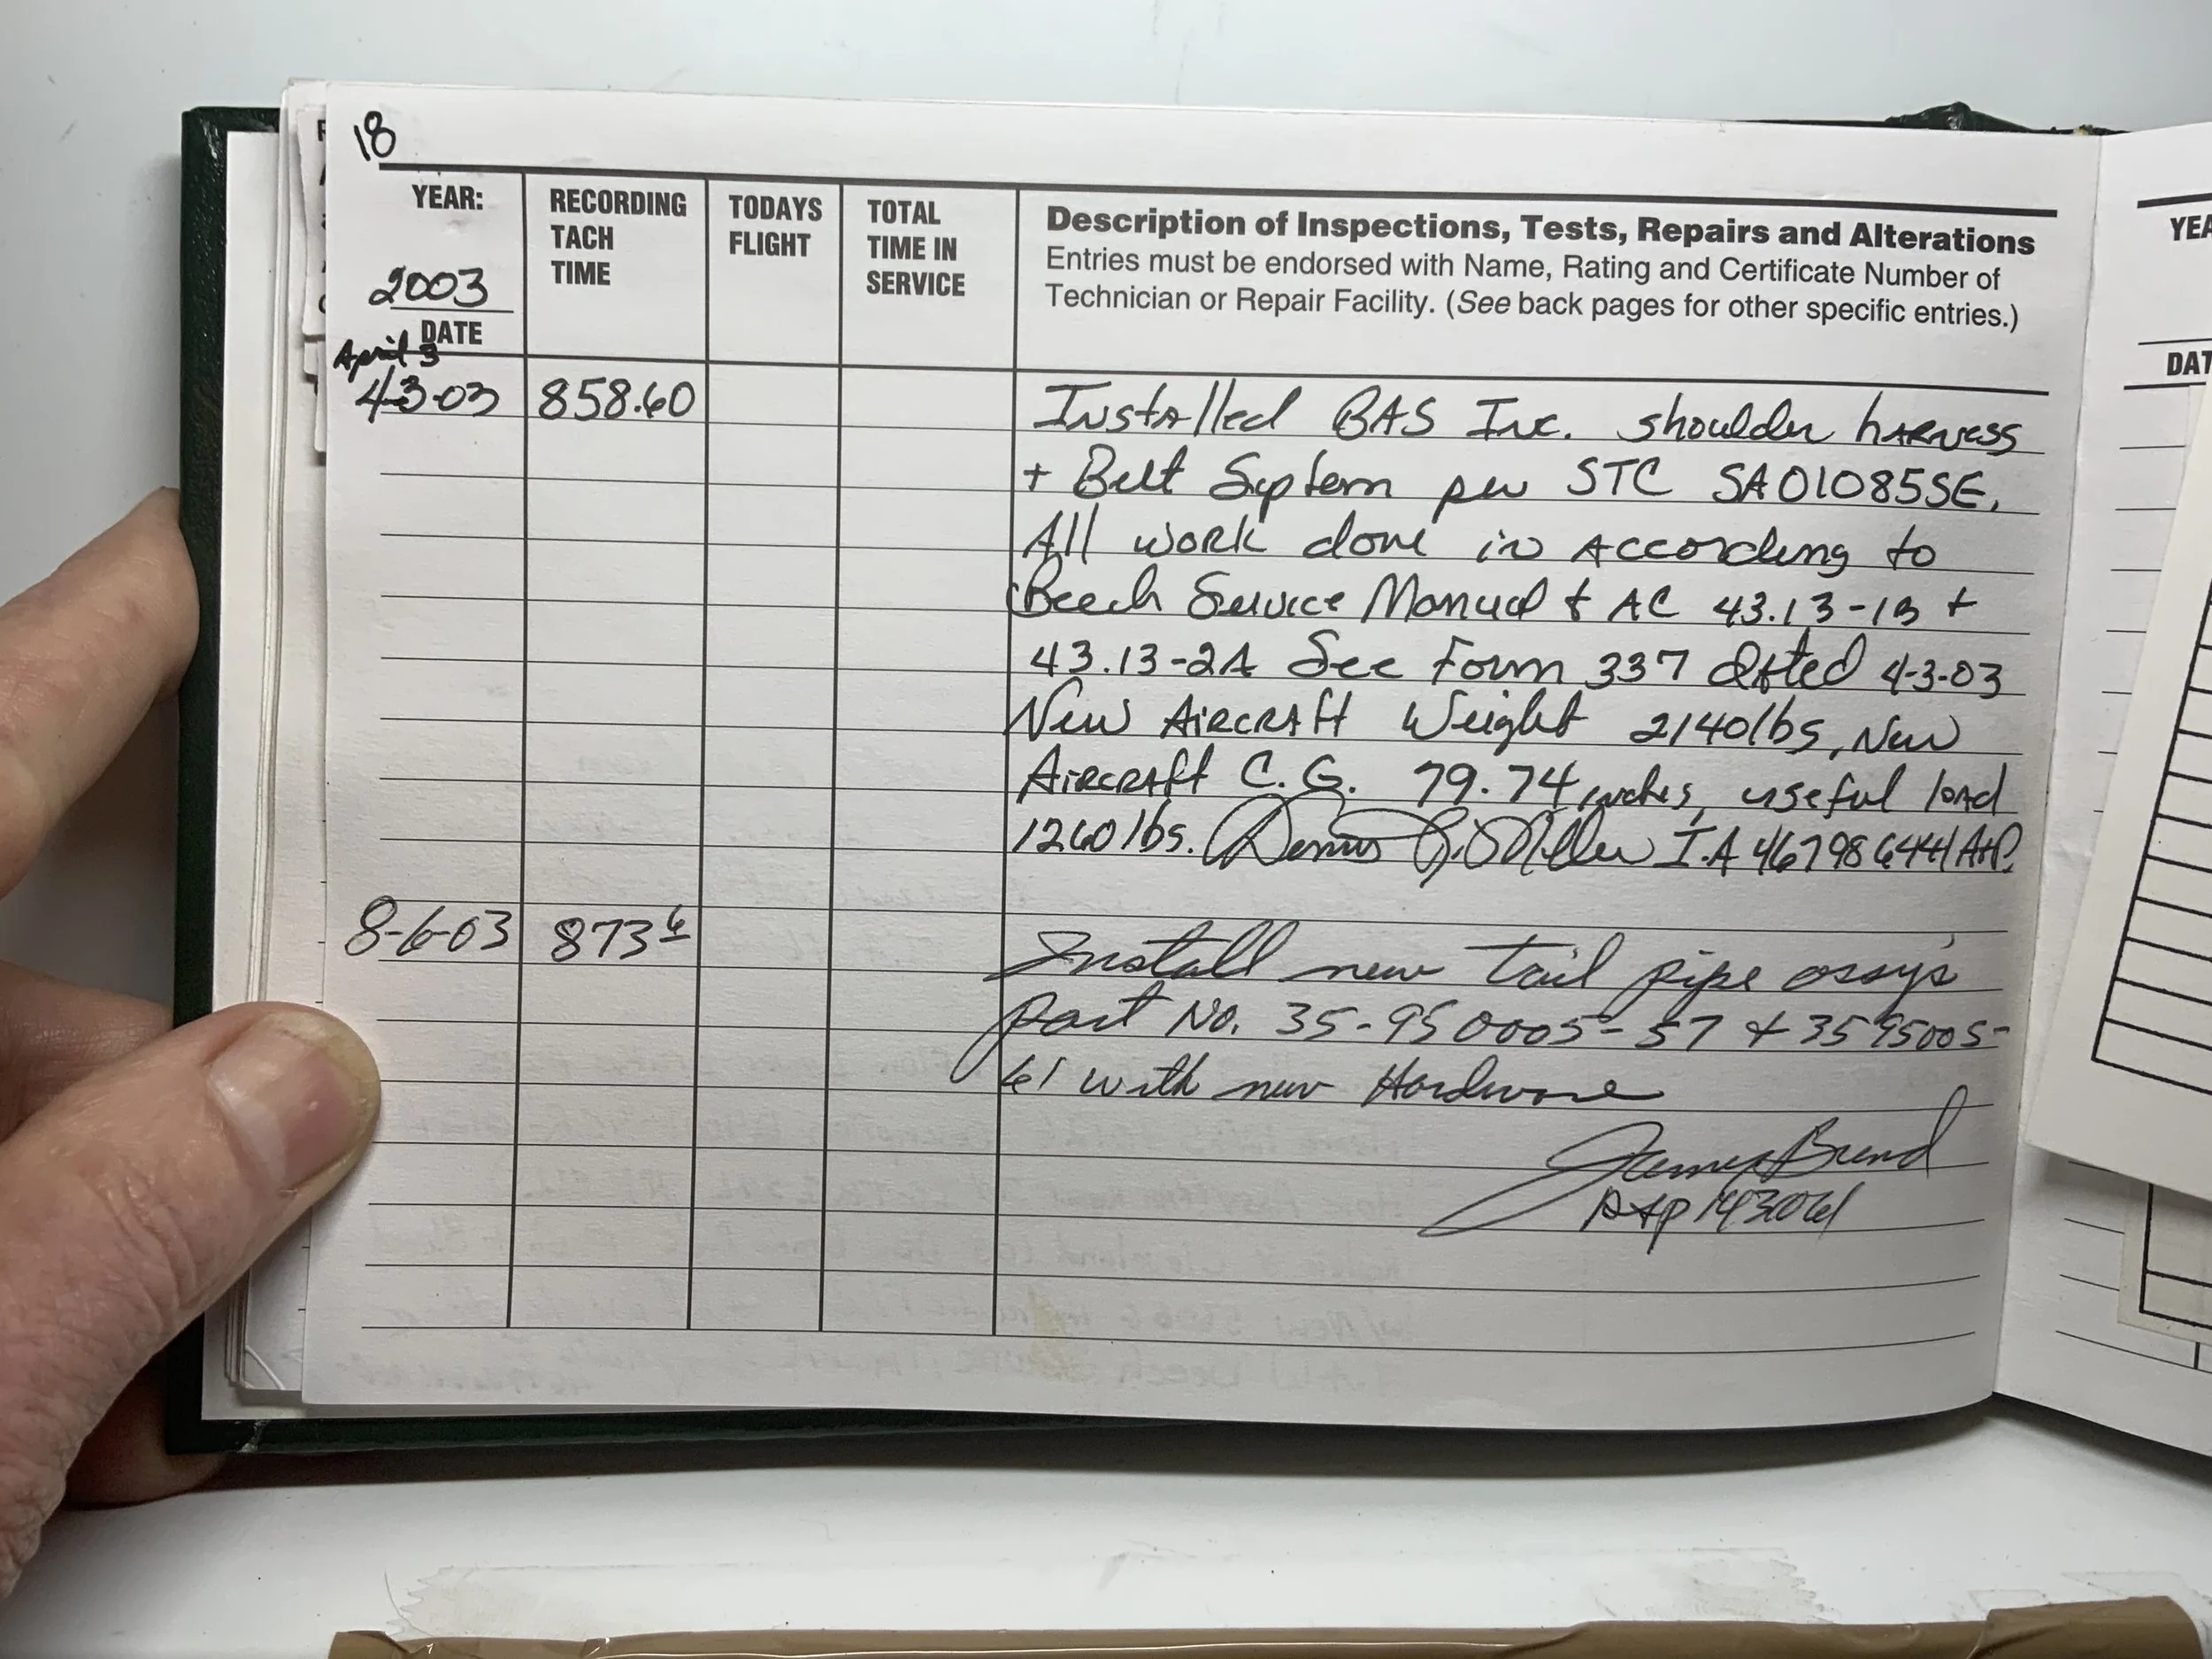 18
YEAR:
2003
DATE
RECORDING
TACH
TIME
TODAYS
FLIGHT
TOTAL
TIME IN
SERVICE
Description of Inspections, Tests, Repairs and Alterations
Entries must be endorsed with Name, Rating and Certificate Number of
Technician or Repair Facility. (See back pages for other specific entries.)
April 3
4-3-03 858.60 Installed BAS Inc. shoulder harness
+ Belt System per STC SA01085SE.
All work done in According to
Beech Service Manual + AC 43.13-1B +
43.13-2A See Form 337 dated 4-3-03
New Aircraft Weight 2140lbs, New
Aircraft C.G. 79.74 inches, useful load
1260lbs. Dennis I.A A+P.
8-6-03 873 6 Install new tail pipe assy's
part No. 35-950005-57 + 3595005-
61 with new Hardware
James
A+P
YEA
DAT